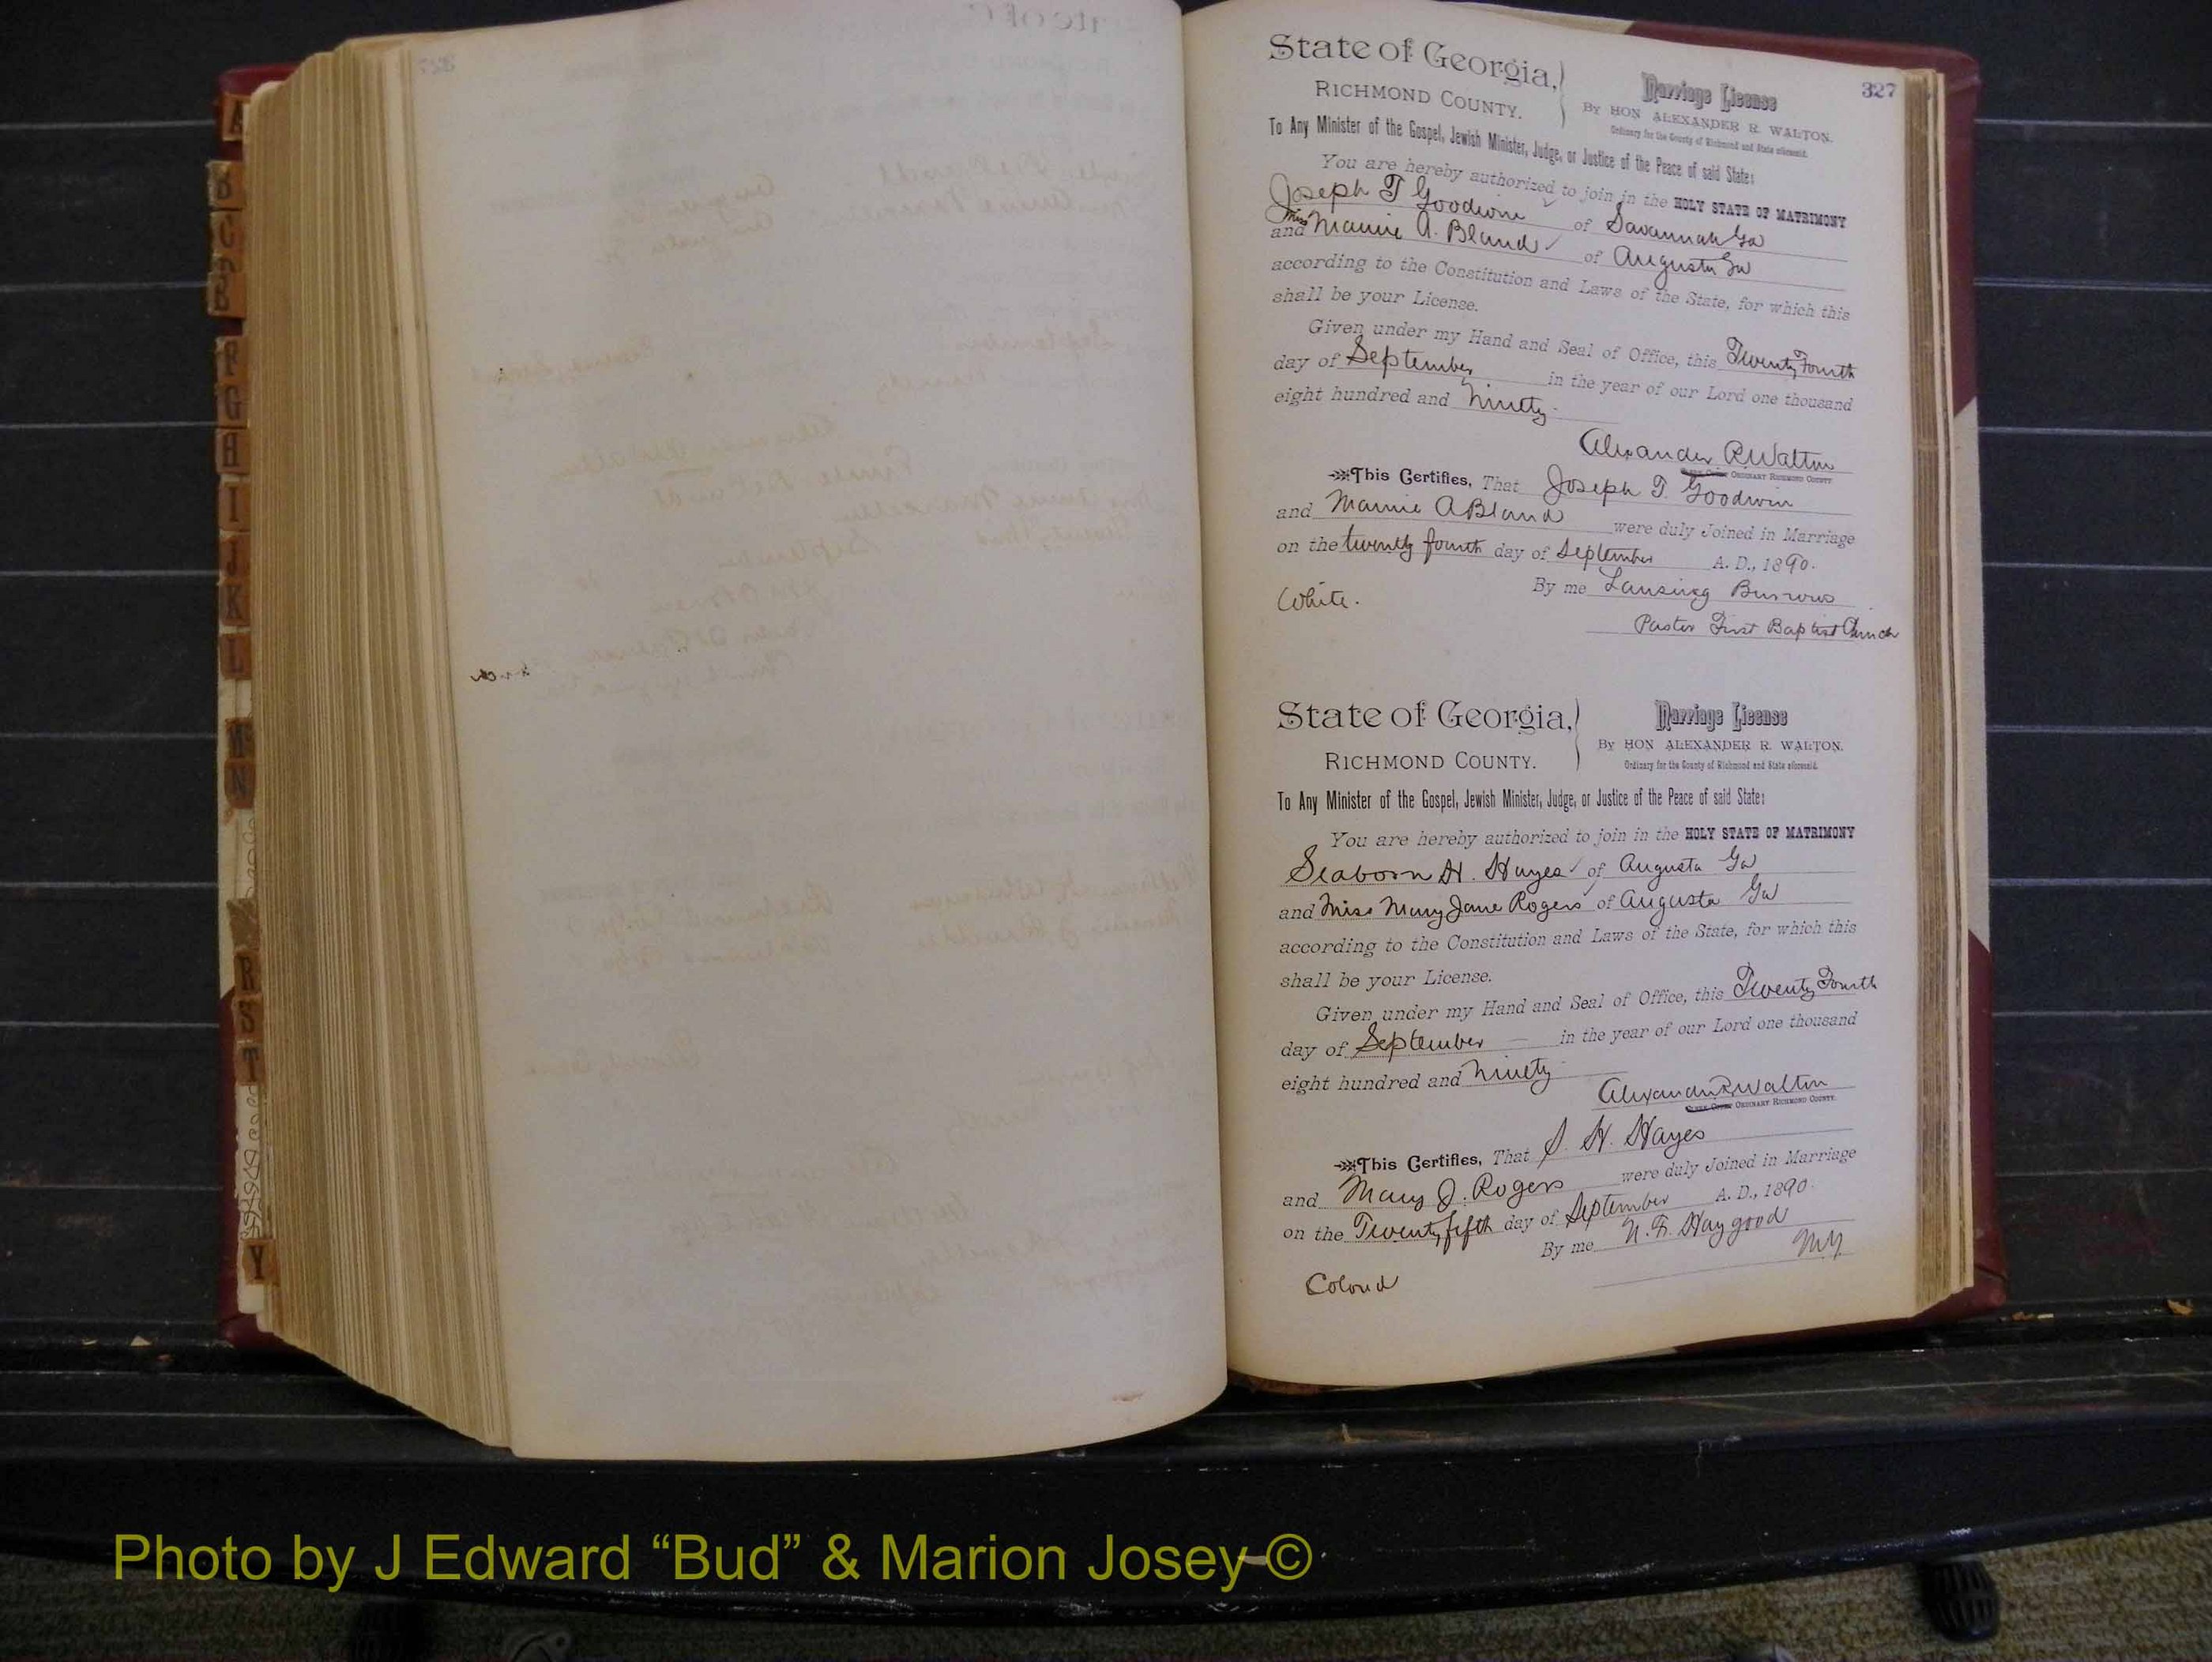 327
State of Georgia,
RICHMOND COUNTY.
Marriage License
BY HON ALEXANDER R. WALTON.
Ordinary for the County of Richmond and State aforesaid.
To Any Minister of the Gospel, Jewish Minister, Judge, or Justice of the Peace of said State:
You are hereby authorized to join in the HOLY STATE OF MATRIMONY
Joseph T Goodwin of Savannah Ga
and Miss Mamie A. Bland of Augusta Ga
according to the Constitution and Laws of the State, for which this
shall be your License.
Given under my Hand and Seal of Office, this Twenty Fourth
day of September in the year of our Lord one thousand
eight hundred and Ninety
Alexander R Walton
ORDINARY RICHMOND COUNTY
This Certifies, That Joseph T. Goodwin
and Mamie A Bland were duly Joined in Marriage
on the twenty fourth day of September A. D., 1890.
By me Lansing Burrows
White.
Pastor First Baptist Church
State of Georgia,
RICHMOND COUNTY.
Marriage License
By HON ALEXANDER R. WALTON.
Ordinary for the County of Richmond and State aforesaid.
To Any Minister of the Gospel, Jewish Minister, Judge, or Justice of the Peace of said State:
You are hereby authorized to join in the HOLY STATE OF MATRIMONY
Seaborn H. Hayes of Augusta Ga
and Miss Mary Jane Rogers of Augusta Ga
according to the Constitution and Laws of the State, for which this
shall be your License.
Given under my Hand and Seal of Office, this Twenty Fourth
day of September in the year of our Lord one thousand
eight hundred and Ninety
Alexander R Walton
ORDINARY RICHMOND COUNTY.
This Certifies, That S. H. Hayes
and Mary J. Rogers were duly Joined in Marriage
on the Twenty fifth day of September A. D., 1890.
By me N. F. Haygood
Colord
A
B
C
D
E
F
G
H
I
J
K
L
M
N
R
S
T
Y
Photo by J Edward “Bud” & Marion Josey ©